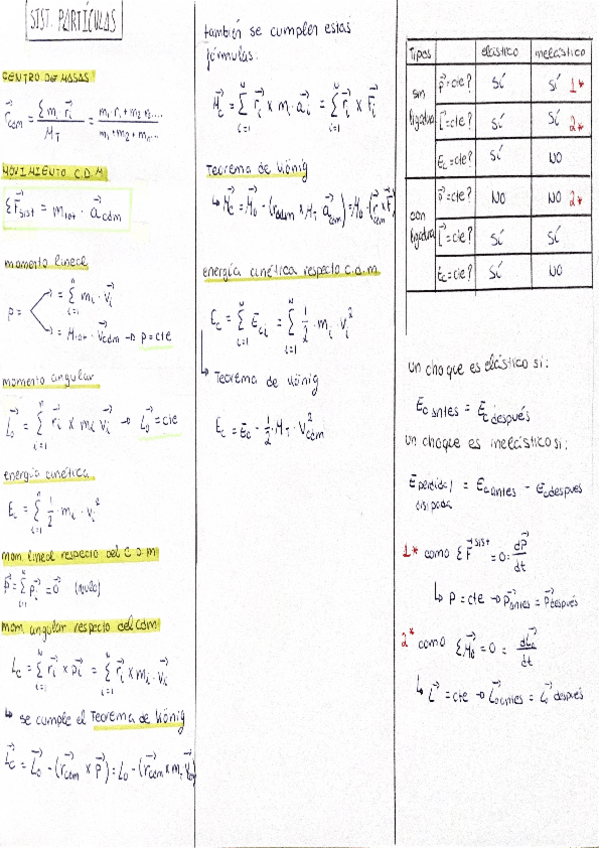 SIST. PARTÍCULAS
CENTRO DE MASAS
r⃗cdm = Σm r⃗i / MT = m₁ r₁ + m₂ r₂ .... / m₁+m₂+mn...
MOVIMIENTO C.D.M
ΣF⃗sist = mtot · a⃗cdm
momento lineal
p = → = Σ(i=1, n) mi · v⃗i
→ = Mtot · v⃗cdm → p = cte
momento angular
L⃗o = Σ(i=1, n) r⃗i x mi v⃗i → L⃗o = cte
energía cinética
Ec = Σ(i=1, n) 1/2 · mi · vi²
mom. lineal respecto del C.D.M
p⃗ = Σ(i=1, n) p⃗i = 0⃗ (nulo)
mom. angular respecto del cdm
Lc = Σ(i=1, n) r⃗i x p⃗i = Σ(i=1, n) r⃗i x mi · v⃗i
↳ se cumple el Teorema de König
L⃗c = L⃗o - (r⃗cdm x p⃗) = Lo - (r⃗cdm x mT
también se cumplen estas
fórmulas:
M⃗c = Σ(i=1, N) r⃗i x mi · a⃗i = Σ(i=1, N) r⃗i x F⃗i
Teorema de König
↳ M⃗c = M⃗o - (rcdm x MT a⃗cdm) = Mo - (r⃗cdm x F⃗)
energía cinética respecto c.d.m
Ec = Σ(i=1, N) Eci = Σ(i=1, N) 1/2 · mi · vi²
↳ Teorema de König
Ec = Ec - 1/2 · MT · v²cdm
Tipos elástico inelástico
sin ligadura p⃗=cte? SÍ SÍ 1*
L⃗=cte? SÍ SÍ 2*
Ec=cte? SÍ NO
con ligadura p⃗=cte? NO NO 2*
L⃗=cte? SÍ SÍ
Ec=cte? SÍ NO
un choque es elástico si:
Ec antes = Ec después
un choque es inelástico si:
E perdida/disipada = Ec antes - Ec después
1* como ΣF⃗sist = 0 = dp⃗/dt
↳ p = cte → p⃗antes = p⃗después
2* como ΣM⃗o = 0 = dL⃗o/dt
↳ L⃗ = cte → L⃗o antes = L⃗o después